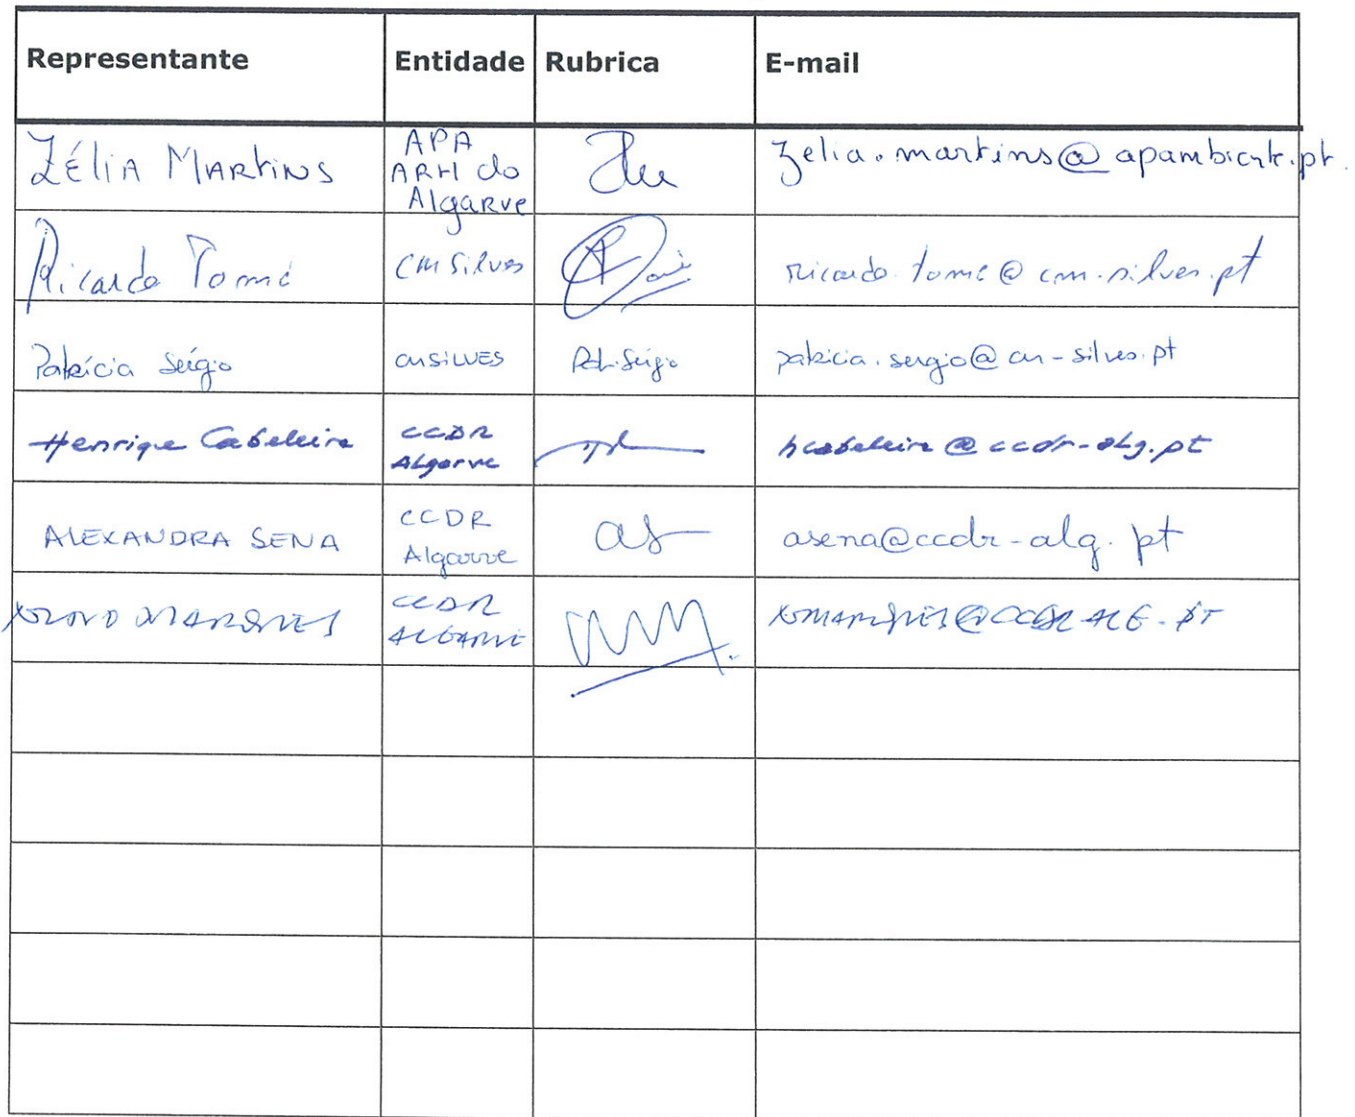 Representante Entidade Rubrica E-mail
Zélia Martins APA ARH do Algarve zelia.martins@apambiente.pt.
Ricardo Tomé CM Silves ricardo.tome@cm-silves.pt
Patrícia Sérgio CM SILVES Pat. Sérgio patricia.sergio@cm-silves.pt
Henrique Cabeleira CCDR Algarve hcabeleira@ccdr-alg.pt
ALEXANDRA SENA CCDR Algarve as asena@ccdr-alg.pt
MARQUES CCDR ALGARVE